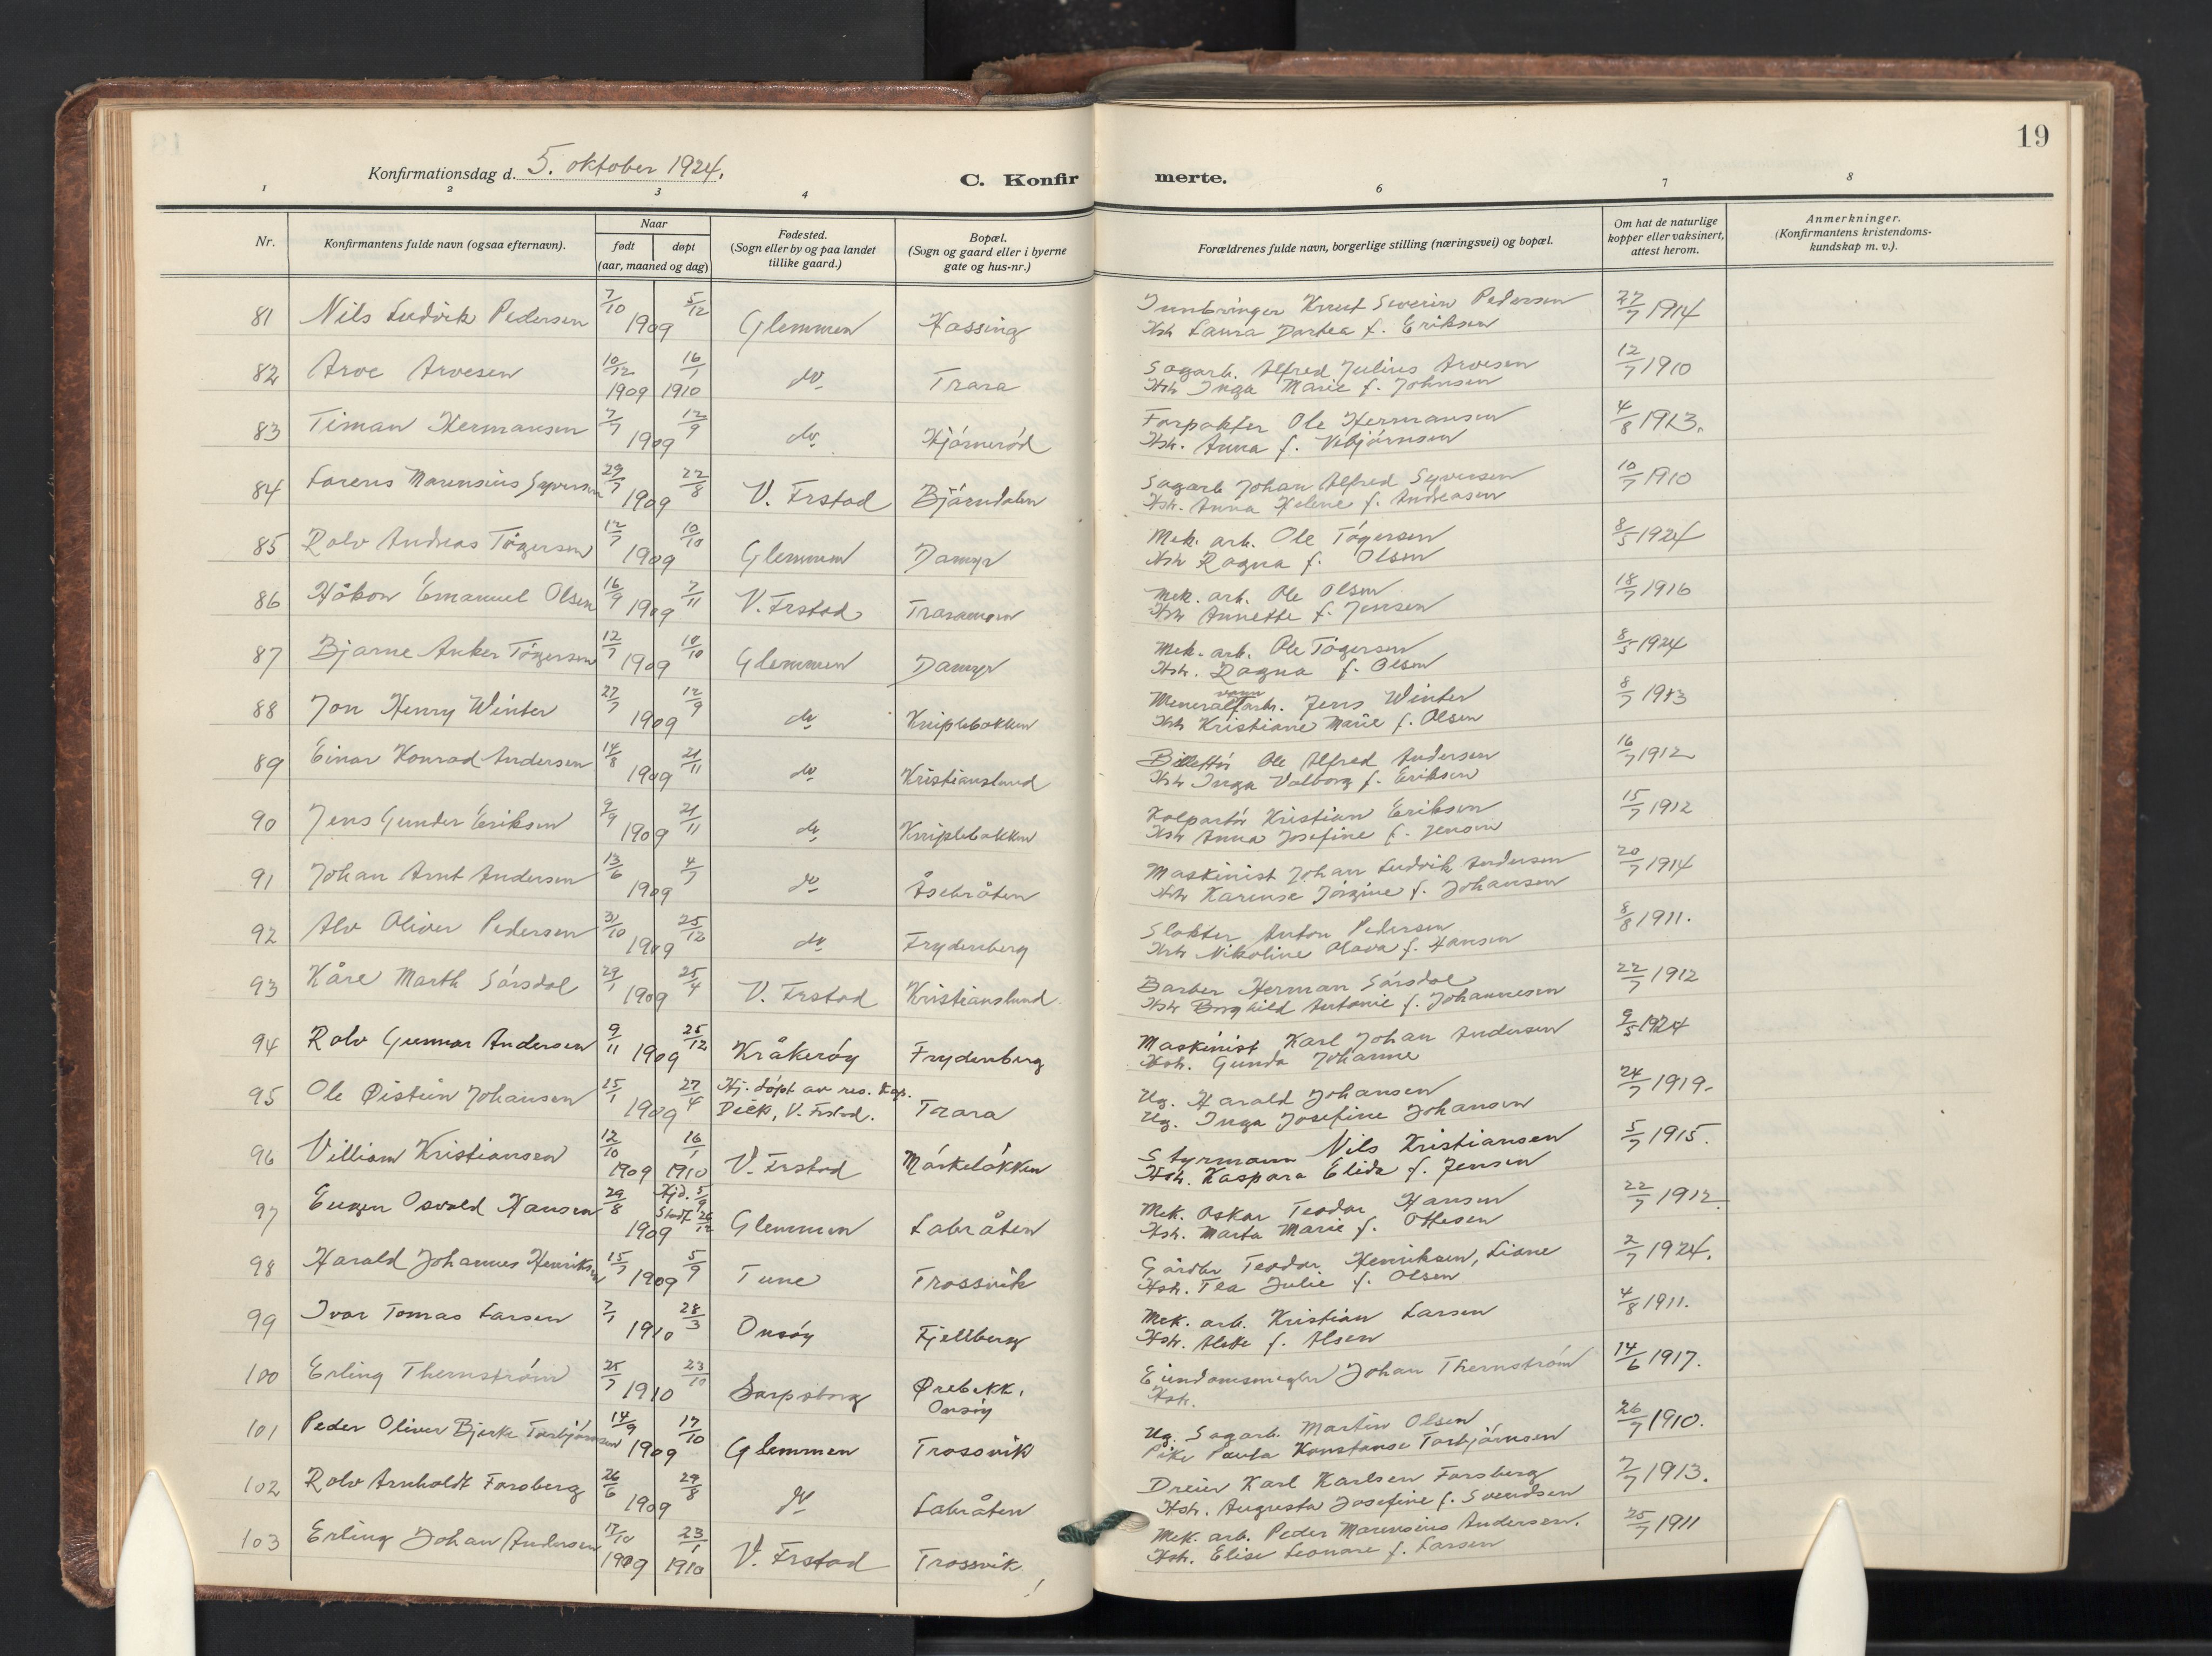 19
Konfirmationsdag d. 5. oktober 1924.
C. Konfirmerte.
1 2 3 4 6 7 8
Nr.
Konfirmantens fulde navn (ogsaa efternavn).
Naar
født
døpt
(aar, maaned og dag)
Fødested.
(Sogn eller by og paa landet
tillike gaard.)
Bopæl.
(Sogn og gaard eller i byerne
gate og hus-nr.)
Forældrenes fulde navn, borgerlige stilling (næringsvei) og bopæl.
Om hat de naturlige
kopper eller vaksinert,
attest herom.
Anmerkninger.
(Konfirmantens kristendoms-
kundskap m. v.).
81 Nils Ludvik Pedersen 7/10 1909 5/12 Glemmen Hassing Knut Severin Pedersen 27/7 1914
Hstr Laura Dortea f. Eriksen
82 Arve Arvesen 10/12 1909 16/1 1910 do Trara Sagarb. Alfred Julius Arvesen 12/7 1910
Hstr Inga Marie f. Johnsen
83 Timan Hermansen 7/7 1909 12/9 do Hjørnerød Forpakter Ole Hermansen 4/8 1923.
Hstr. Anna f. Vebjørnsen
84 Lorens Marensius Syversen 29/7 1909 22/8 V. Frstad Bjørndalen Sagarb Johan Alfred Syversen 10/7 1910
Hstr. Anna Helene f. Andreasen
85 Rolv Andreas Tøgersen 12/7 1909 10/10 Glemmen Damyr Mek. arb. Ole Tøgersen 8/5 1924
Hstr Ragna f. Olsen
86 Håkon Emanuel Olsen 16/9 1909 7/11 V. Frstad Traramoen Mek. arb. Ole Olsen 18/7 1916
Hstr Annette f. Jensen
87 Bjarne Anker Tøgersen 12/7 1909 10/10 Glemmen Damyr Mek. arb. Ole Tøgersen 8/5 1924
Hstr. Ragna f. Olsen
88 Jon Henry Winter 27/7 1909 12/9 do Kniplebakken Jens Winter 8/7 1913
Hstr Kristiane Marie f. Olsen
89 Einar Konrad Andersen 14/8 1909 21/11 do Kristianslund Billettør Ole Alfred Andersen 16/7 1912
Hstr Inga Valborg f. Eriksen
90 Jens Gunder Eriksen 9/9 1909 21/11 do Kniplebakken Kolportør Kristian Eriksen 15/7 1912
Hstr Anna Josefine f. Jensen
91 Johan Arnt Andersen 13/6 1909 4/7 do Åsebråten Maskinist Johan Ludvik Andersen 20/7 1914
Hstr Karense Jørgine f. Johansen
92 Alv Oliver Pedersen 31/10 1909 25/12 do Frydenberg Slakter Anton Pedersen 8/8 1911.
Hstr Nikoline Olava f. Hansen
93 Kåre Marth Sørsdal 29/1 1909 25/4 V. Frstad Kristianslund Barber Herman Sørsdal 22/7 1912
Hstr Borghild Antonie f. Johannesen
94 Rolv Gunnar Andersen 9/11 1909 25/12 Kråkerøy Frydenberg Maskinist Karl Johan Andersen 9/5 1924
Hstr. Gunda Johanne
95 Ole Øistein Johansen 15/1 1909 27/4 Hj. døpt av res. Kap. Trara Ug. Harald Johansen 24/7 1919.
Dick, V. Frstad. Ug. Inga Josefine Johansen
96 Villiam Kristiansen 12/10 1909 16/1 1910 V. Frstad Mørkeløkken Styrmann Nils Kristiansen 5/7 1915.
Hstr. Kaspara Elida f. Jensen
97 Eugen Osvald Hansen 29/8 1909 Hjd. 5/9 Stadf. 26/12 Glemmen Labråten Mek. Oskar Teodor Hansen 22/7 1912.
Hstr. Marta Marie f. Ottesen
98 Harald Johannes Henriksen 15/7 1909 5/9 Tune Trossvik Teodor Henriksen, Liane 2/7 1924.
Hstr. Tea Julie f. Olsen
99 Ivar Tomas Larsen 7/1 1910 28/3 Onsøy Fjellberg Mek. arb. Kristian Larsen 4/8 1911.
Hstr. f. Olsen
100 Erling Thernstrøm 25/7 1910 23/10 Sarpsborg Ørebekk, Onsøy Eiendomsmegler Johan Thernstrøm 14/6 1917.
Hstr.
101 Peder Oliver Bjerke Torbjørnsen 14/9 1909 17/10 Glemmen Trossvik Ug. Sagarb. Martin Olsen 26/7 1910.
Pike Paula Konstanse Torbjørnsen
102 Rolv Arnholdt Forsberg 26/6 1909 29/8 do Labråten Dreier Karl Karlsen Forsberg 7/7 1913.
Hstr. Augusta Josefine f. Svendsen
103 Erling Johan Andersen 17/10 1909 23/1 1910 V. Frstad Trossvik Mek. arb. Peder Marensius Andersen. 25/7 1911
Hstr. Elise Leonare f. Larsen